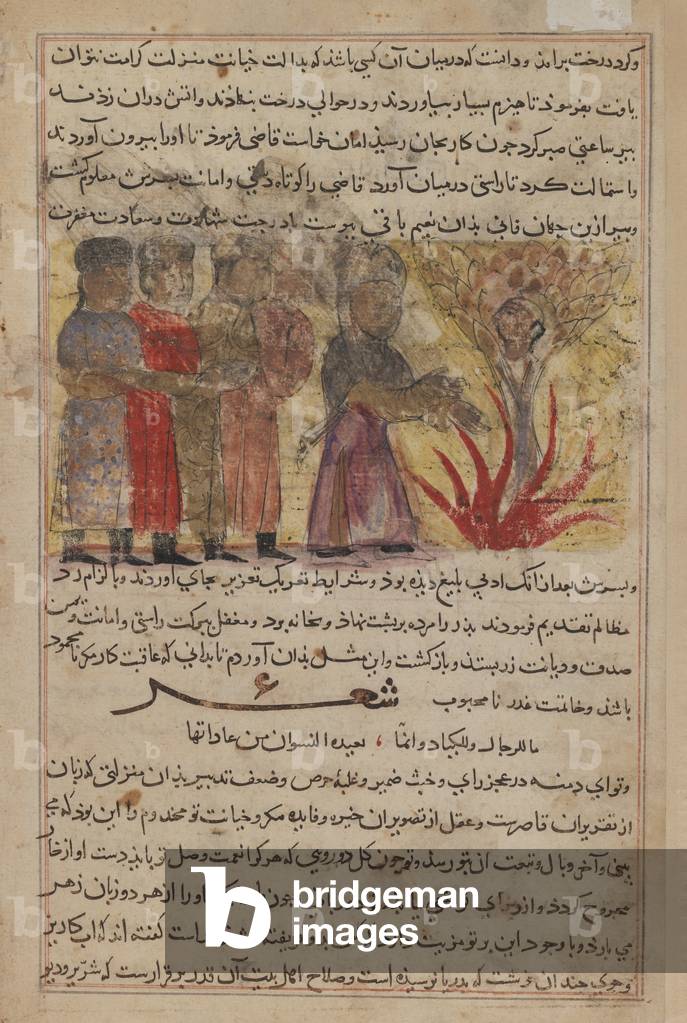 و کرد درخت برآمد و دانست که در میان آن کسی باشد که بدالت خیانت منزلت کرامت نتوان
یافت بفرمود تا هیزم بسیار بیاوردند و در حوالی درخت بنهادند و آتش دران زدند
پیر ساعتی صبر کرد چون کار بجان رسید امان خواست قاضی فرمود تا اورا بیرون آوردند
و استمالت کرد تا راستی در میان آورد قاضی را کوتاه دستی و امانت پسرش معلوم گشت
و پیر ازین جهان فانی بدان نعیم باقی پیوست با درجت شهادت و سعادت مغفرت
و پسرش بعد از آنک ادبی بلیغ دیده بود و شرایط تعریک و تعزیر بجای آوردند و بالزام رد
مظالم تقدیم فرمودند پدر را مرده بر پشت نهاد و بخانه برد و مغفل ببرکت راستی و امانت و یمن
صدق و دیانت زر بستد و بازگشت و این مثل بدان آوردم تا بدانی که عاقبت کار مکر نامحمود
باشد و خاتمت غدر نامحبوب
شعر
ما للرجال وللکیاد وانما یعیده النسوان من عاداتها
و تو ای دمنه در عجز رای و خبث ضمیر و غلبه حرص و ضعف تدبیر بدان منزلتی که زبان
از تقریر آن قاصرست و عقل از تصویر آن خیره و فایده مکر و خیانت تو مخدوم را این بود که می
بینی و آخر وبال و تبعت آن بتو رسد و تو چون گل دورویی که هر کرا نعمت وصل تو باید دست او از خار
مجروح گردد و از
را از هر دو زبان زهر
می بارد و با وجود این
است گفته اند که آب کاریز
و جوی چندان خوشست که بدریا نرسیده است و صلاح اهل بیت آن قدر برقرارست که شریر و دیو
bridgeman
images